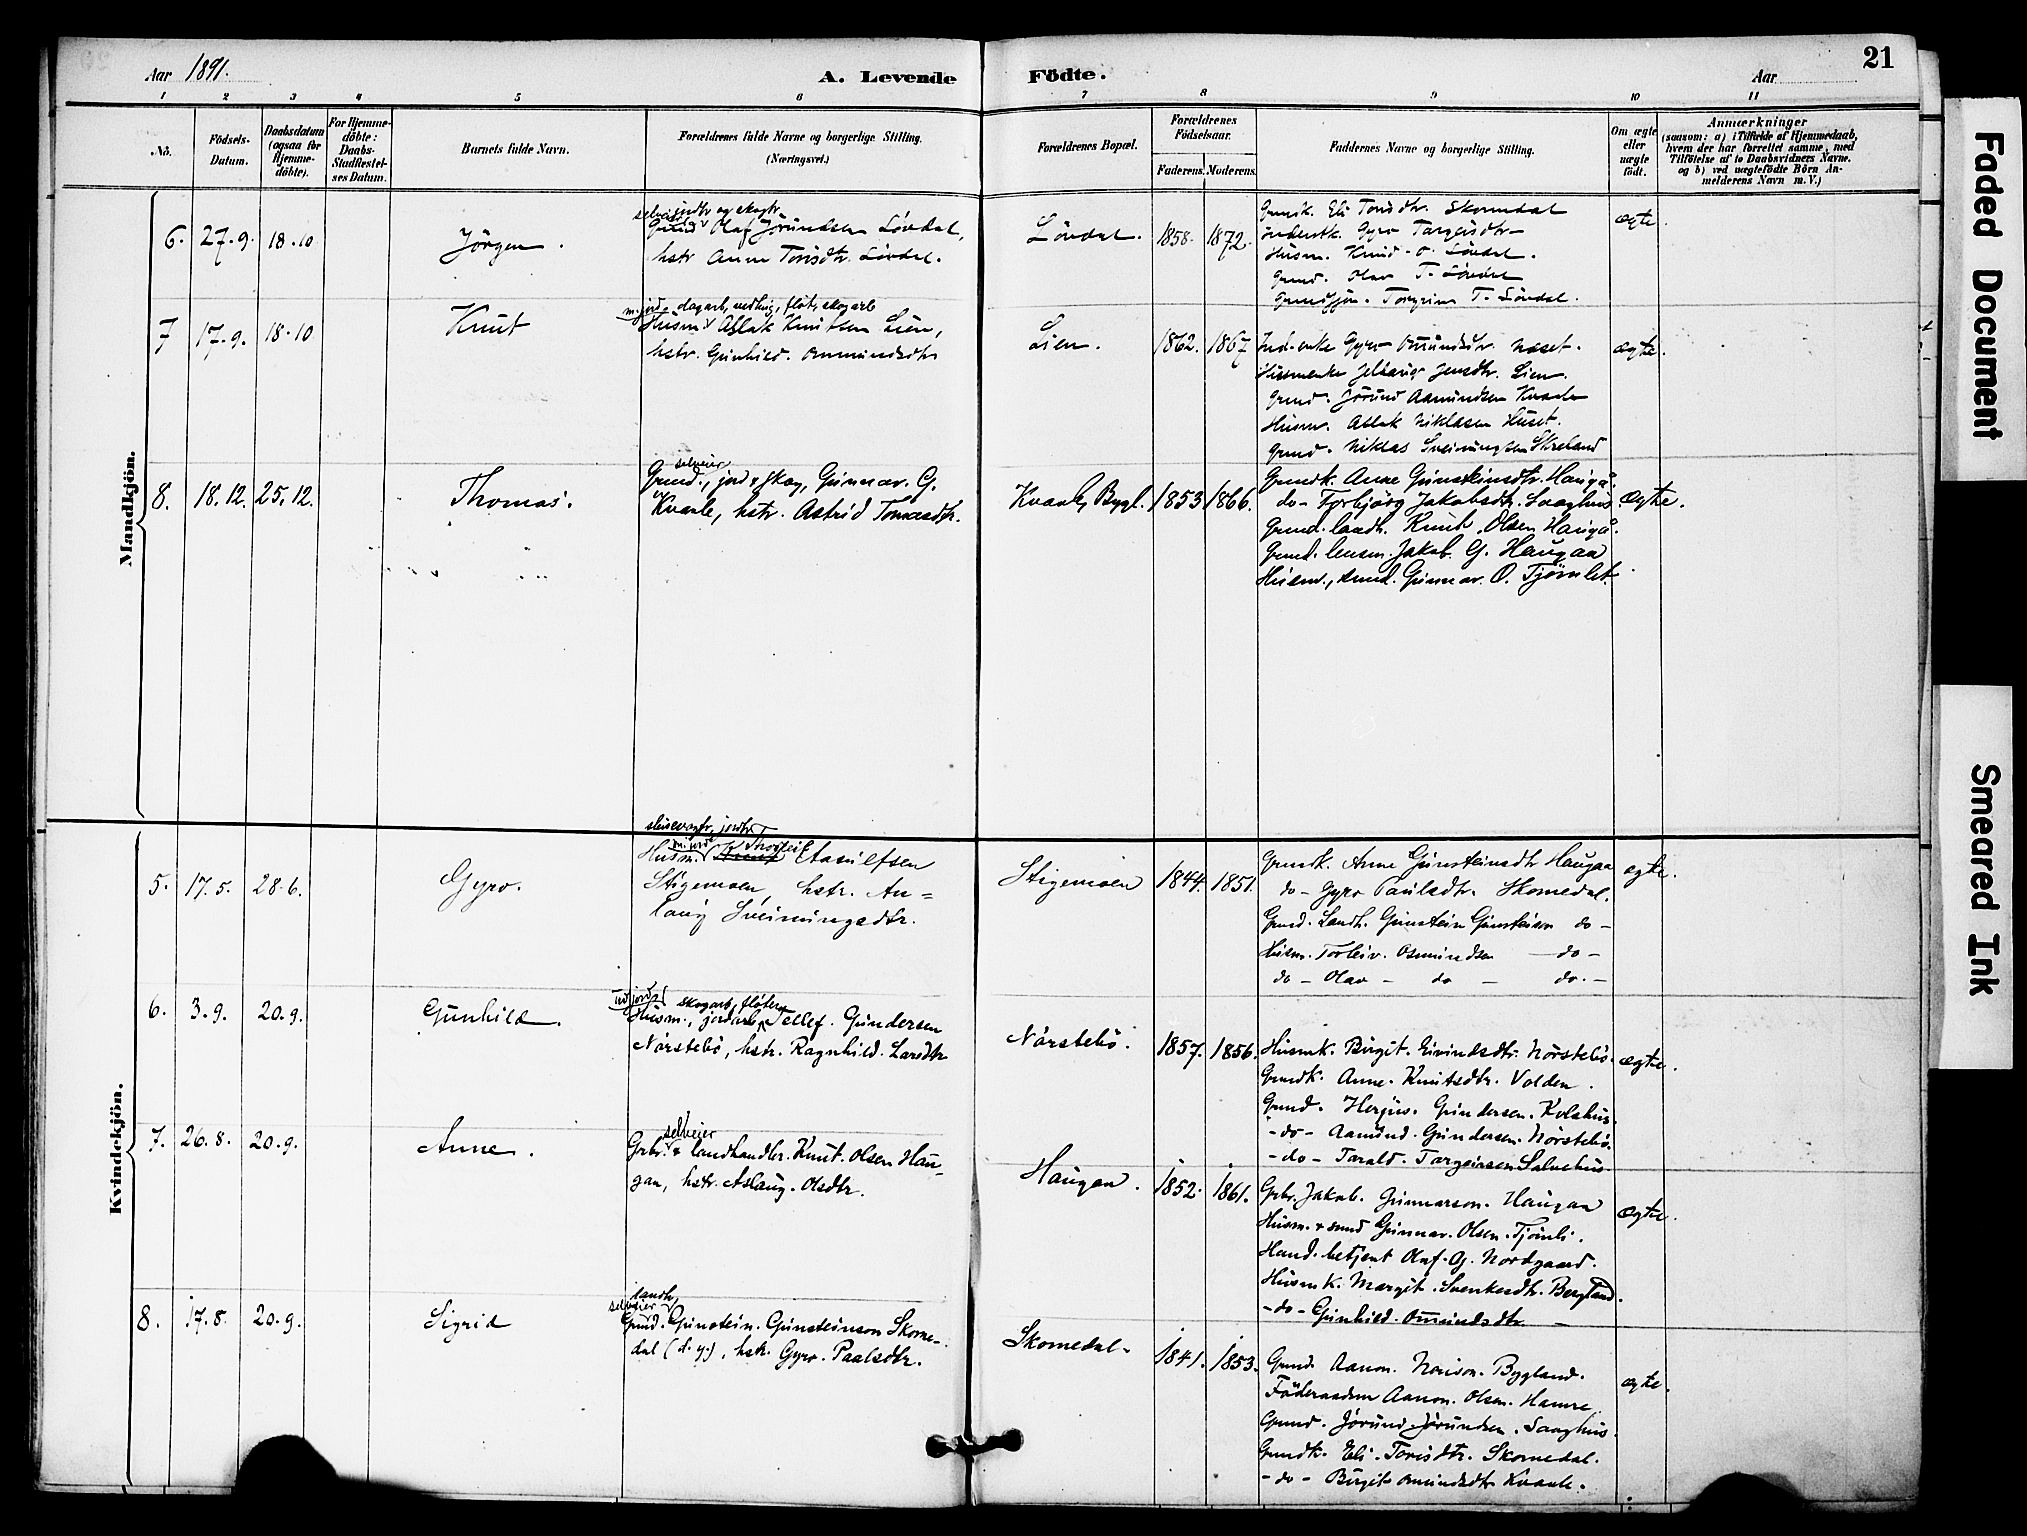 Aar 1891.
A. Levende Födte.
Aar
21
1 2 3 4 5 6 7 8 9 10 11
No.
Födsels-Datum.
Daabsdatum (ogsaa for Hjemme-döbte).
For Hjemme-döbte: Daabs-Stadfæstel-ses Datum.
Barnets fulde Navn.
Forældrenes fulde Navne og borgerlige Stilling. (Næringsvei.)
Forældrenes Bopæl.
Forældrenes Födselsaar.
Faderens. Moderens.
Faddernes Navne og borgerlige Stilling.
Om ægte eller uægte födt.
Anmærkninger
(saasom: a) i Tilfælde af Hjemmedaab, hvem der har forrettet samme, med Tilföielse af to Daabsvidners Navne. og b) ved uægtefödte Börn An-melderens Navn m. V.)
Mandkjön.
6. 27-9. 18-10 Jörgen.
selveier jordbr og skogbr
Olaf Jörundsen Lövdal,
hstr Anne Torisdtr. Lövdal.
Lövdal. 1858. 1872.
Gmdk. Eli Torisdtr. Skomedal
Gyro Targeisdtr
Husm. Knud O. Lövdal.
Gmd. Olav T. Lövdal
Torgrim T. Lövdal.
ægte.
7 17-9. 18-10 Knut
m. jord dagarb, vedhug, fløt, skogarb
Husm. Aslak Knutsen Lien,
hstr. Gunhild. Omundsdtr
Lien. 1862. 1867
Ind-enke Gyro Omundsdtr. Næset.
Husmenke Jensdtr. Lien.
Gmd. Jörund Aamundsen Kvaale
Husm. Aslak Niklasen Huset.
Gmd. Niklas Sveinungsen Skreland
ægte.
8. 18.12. 25.12. Thomas.
selveier
Gmd., jord & skog, Gunnar. G.
Kvaale, hstr. Astrid Tomasdtr.
Kvaale, Bygl. 1853 1866.
Gmdk. Anne Gunsteinsdtr. Haugå.
do- Torbjörg Jakobsdtr. Saaghus
Gmd. landh. Knut Olsen Haugå.
Gmd. lensm. Jakob. G. Haugaa
Husm., smed. Gunnar. O. Tjömlet.
ægte.
Kvindekjön.
5. 17.5. 28-6. Gyro.
jordbr
m. jord Thorleif
Husm. Knut Aasulfsen
Stigemoen, hstr. An=
laug Sveinungsdtr.
Stigemoen 1844. 1851.
Gmdk. Anne Gunsteinsdtr Haugaa
do- Gyro Paulsdtr. Skomedal.
Gmd. Landh. Gunstein Gunsteinson do-
Husm. Torleiv. Osmundsen do-
do- Olav- do - do.-
ægte.
6. 3-9. 20-9. Gunhild.
u/jord skogarb, fløter
Husm., jordarb, Tellef. Gundersen
Nörstebö, hstr. Ragnhild. Larsdtr
Nörstebö. 1857. 1856.
Husmk. Birgit. Eivindsdtr. Nörstebö.
Gmdk. Anne. Knutsdtr. Volden.
Gmd. Herjus. Gundersen. Kolshus.
-do- Aamund. Gundersen. Nörstebö.
-do- Tarald. Targeirsen Salvehus
ægte.
7. 26-8. 20-9. Anne.
selveier
Grbr. & landhandler. Knut. Olsen Hau-
gaa, hstr. Aslaug. Olsdtr.
Haugaa. 1852. 1861.
Grbr. Jakob. Gunnarson. Haugaa
Husm. & smed Gunnar. Olsen. Tjömli.
Hand. betjent Olaf. G. Nordgaard.
Husmk. Margit. Svenkesdtr. Bergland.
-do- Gunhild. Omundsdtr. -
ægte.
8. 17-8. 20-9. Sigrid
landh,
selveier
Gmd. Gunstein. Gunsteinson Skome-
dal (d.y.), hstr. Gyro. Paalsdtr.
Skomedal. 1841. 1853.
Gmd. Aanon. Bygland.
Föderaadsm Aanon. Olsen. Hamre
Gmd. Jörund. Jörundsen. Saaghus.
Gmdk. Eli. Torisdtr. Skomedal.
-do- Birgit Omundsdtr Kvaale.
ægte.
Faded Document
Smeared Ink